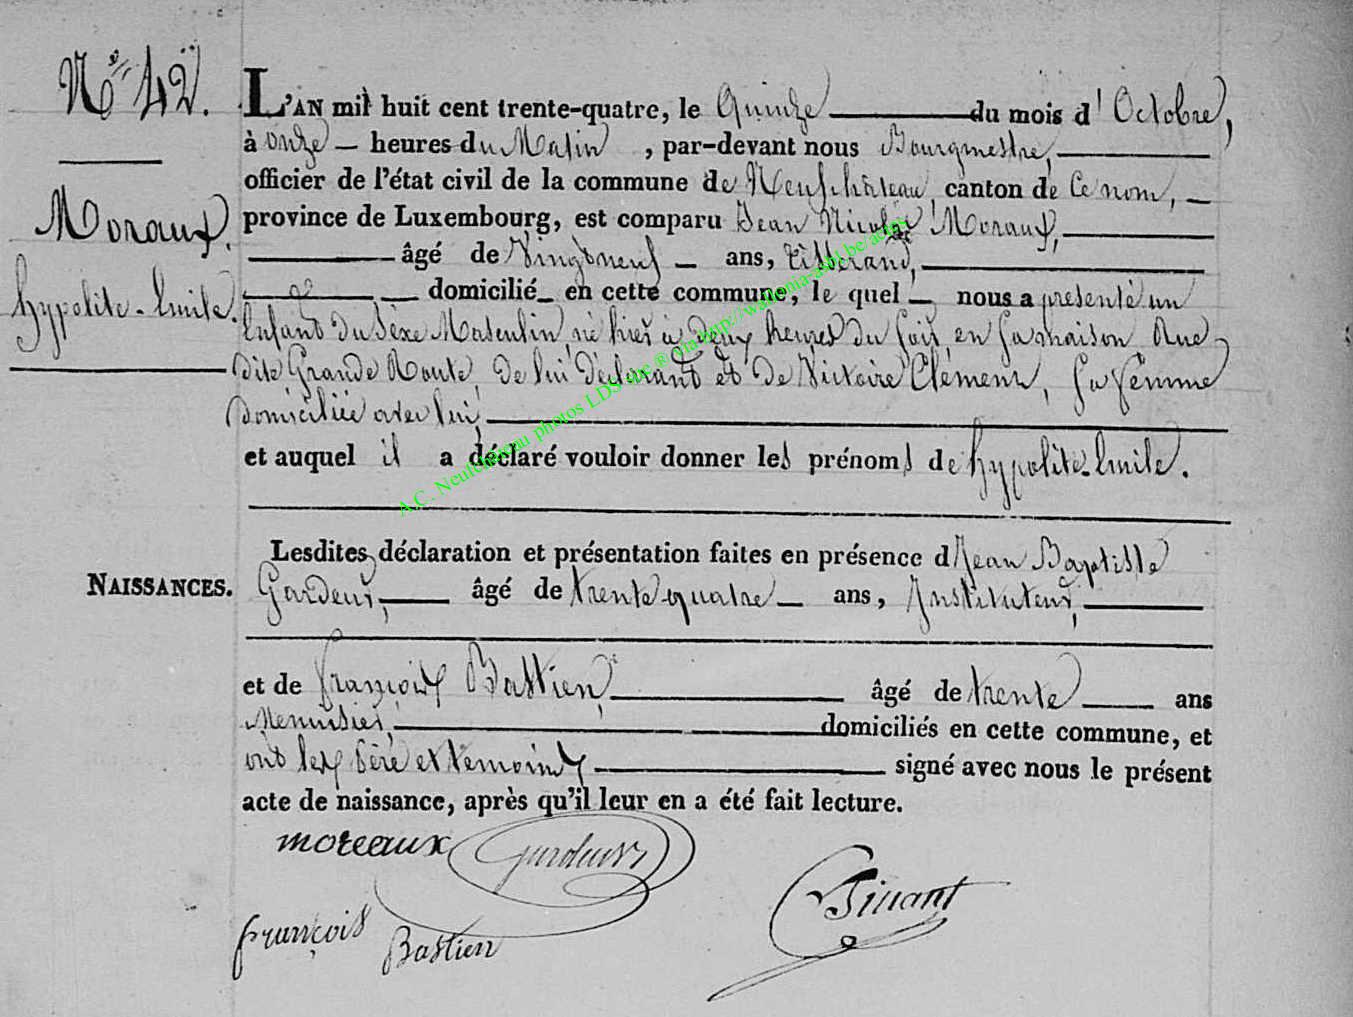 N° 42.
Moraux,
hypolite-Emile.
NAISSANCES.
L'AN mil huit cent trente-quatre, le Quinze du mois d'Octobre,
à onze heures du Matin, par-devant nous Bourgmestre,
officier de l'état civil de la commune de Neufchâteau, canton de Ce nom,
province de Luxembourg, est comparu Jean Nicolas Moraux,
âgé de Vingtneuf ans, tisserand,
domicilié en cette commune, le quel nous a presenté un
Enfant du Sèxe Masculin, né hier à deux heures du soir, en sa maison Rue
dite Grande Route, de lui déclarant et de Victoire Clément, sa femme
domiciliée avec lui,
et auquel il a déclaré vouloir donner les prénoms de hypolite-Emile.
Lesdites déclaration et présentation faites en présence d Jean Baptiste
Gardeur, âgé de trente quatre ans, Instituteur,
et de françois Bastien, âgé de trente ans
Menuisier, domiciliés en cette commune, et
ont les père et témoins signé avec nous le présent
acte de naissance, après qu'il leur en a été fait lecture.
moreaux Gardeur
françois Bastien
A.C. Neufchâteau photos LDS inc ® via http://wallonia-asbl.be/actes